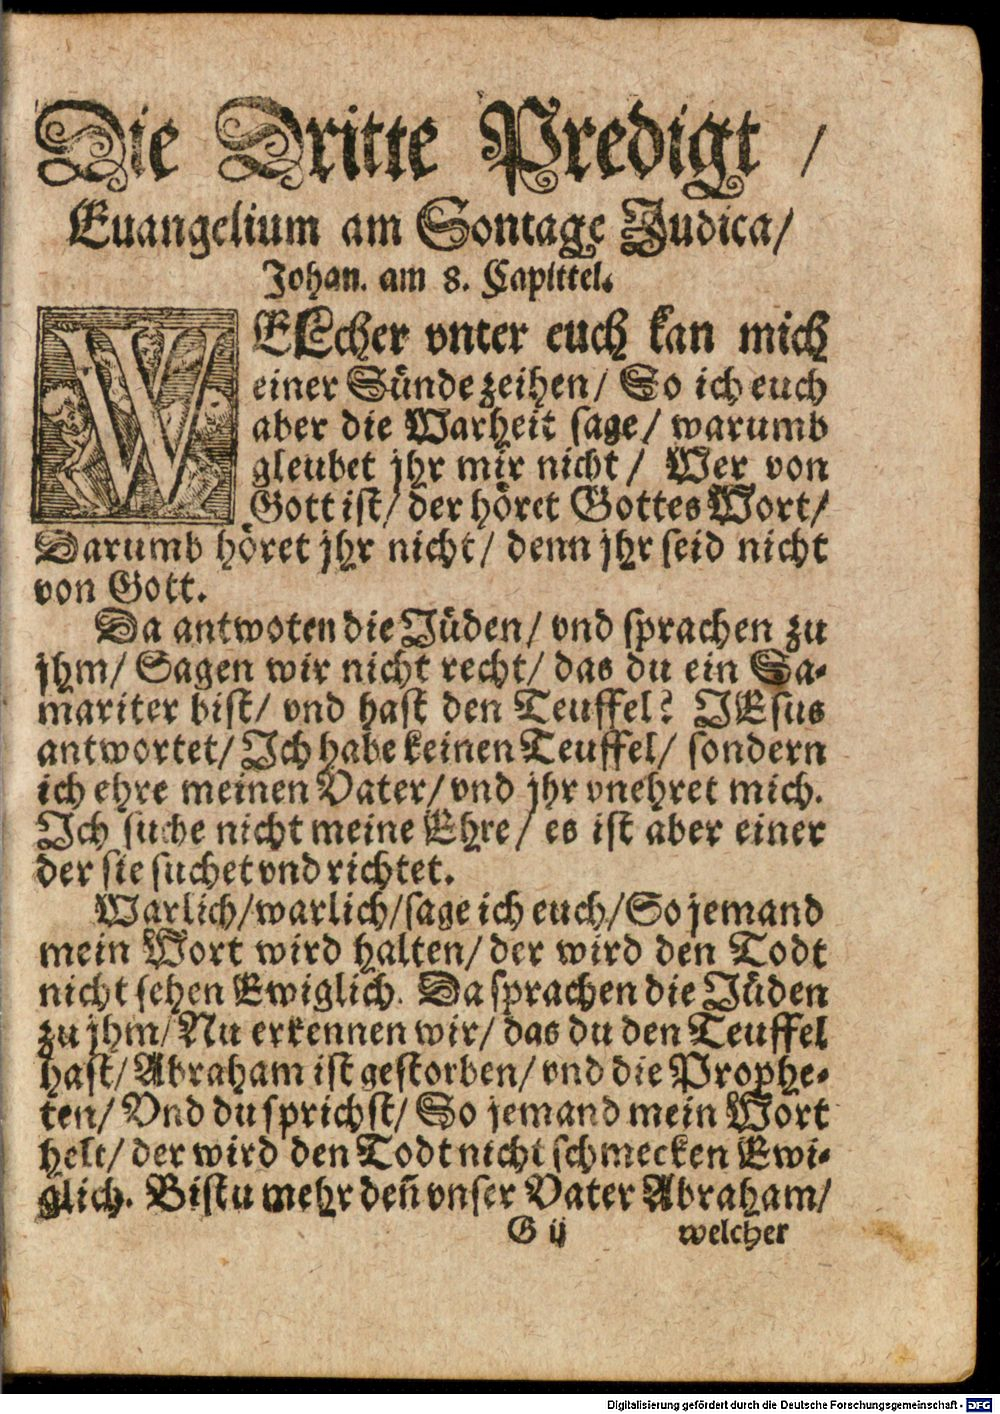 Die Dritte Predigt /
Euangelium am Sontage Judica/
Johan. am 8. Capittel.
WELcher vnter euch kan mich
einer Sünde zeihen/ So ich euch
aber die Warheit sage/ warumb
gleubet jhr mir nicht/ Wer von
Gott ist/ der höret Gottes Wort/
Darumb höret jhr nicht/ denn jhr seid nicht
von Gott.
Da antwoten die Jüden/ vnd sprachen zu
jhm/ Sagen wir nicht recht/ das du ein Sa-
mariter bist/ vnd hast den Teuffel? JEsus
antwortet/ Jch habe keinen Teuffel/ sondern
ich ehre meinen Vater/ vnd jhr vnehret mich.
Jch suche nicht meine Ehre/ es ist aber einer
der sie suchet vnd richtet.
Warlich/warlich/sage ich euch/So jemand
mein Wort wird halten/ der wird den Todt
nicht sehen Ewiglich. Da sprachen die Jüden
zu jhm/ Nu erkennen wir/ das du den Teuffel
hast/ Abraham ist gestorben/ vnd die Prophe-
ten/ Vnd du sprichst/ So jemand mein Wort
helt/ der wird den Todt nicht schmecken Ewi-
glich. Bistu mehr deñ vnser Vater Abraham/
G ij welcher
Digitalisierung gefördert durch die Deutsche Forschungsgemeinschaft - DFG